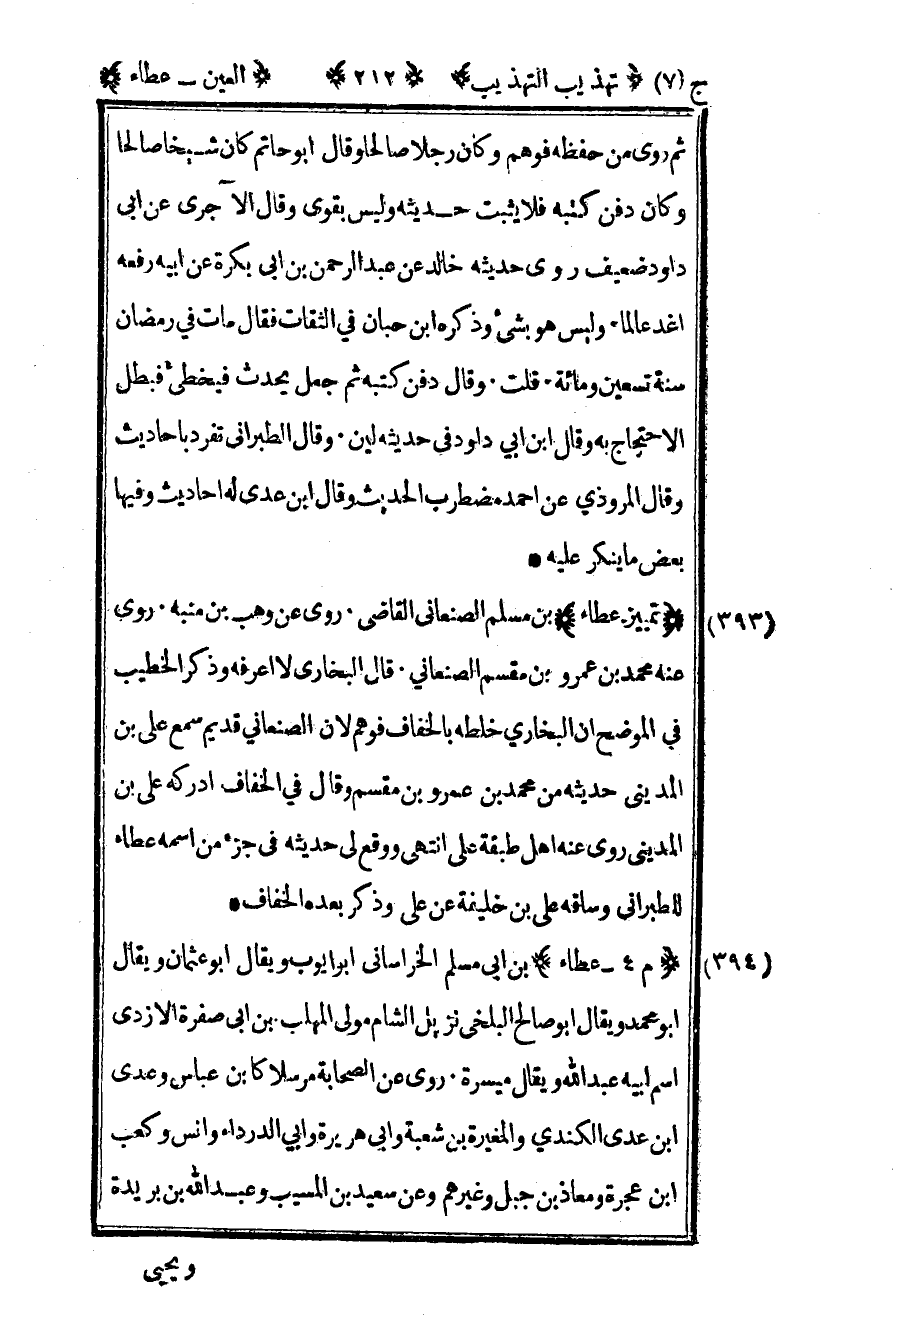 ج (٧) ﴿ تهذيب التهذيب ﴾ ﴿ ٢١٢ ﴾ ﴿ العين ــ عطاء ﴾
ثم روى من حفظه فوهم وكان رجلا صالحا وقال ابو حاتم كان شيخا صالحا
وكان دفن كتبه فلا يثبت حديثه وليس بقوى وقال الآجرى عن ابى
داود ضعيف روى حديثه خالد عن عبد الرحمن بن ابى بكرة عن ابيه رفعه
اغد عالما · وليس هو بشئ وذكره ابن حبان في الثقات فقال مات في رمضان
سنة تسعين ومائة · قلت · وقال دفن كتبه ثم جعل يحدث فيخطئ فبطل
الاحتجاج به وقال ابن ابي داود فى حديثه لين · وقال الطبرانى تفرد باحاديث
وقال المروذي عن احمد مضطرب الحديث وقال ابن عدى له احاديث وفيها
بعض ماينكر عليه •
(٣٩٣) ﴿ تمييز ـ عطاء ﴾ بن مسلم الصنعانى القاضى · روى عن وهب بن منبه · روى
عنه محمد بن عمرو بن مقسم الصنعاني · قال البخارى لا اعرفه وذكر الخطيب
في الموضح ان البخاري خلطه بالخفاف فوهم لان الصنعاني قديم سمع على بن
المدينى حديثه من محمد بن عمرو بن مقسم وقال في الخفاف ادركه على بن
المدينى روى عنه اهل طبقة على انتهى ووقع لى حديثه فى جزء من اسمه عطاء
للطبرانى وساقه على بن خليفة عن على وذكر بعده الخفاف •
(٣٩٤) ﴿ م ٤ ــ عطاء ﴾ بن ابى مسلم الخراسانى ابو ايوب ويقال ابو عثمان ويقال
ابو محمد ويقال ابو صالح البلخى نزيل الشام مولى المهلب بن ابى صفرة الازدى
اسم ابيه عبد الله ويقال ميسرة · روى عن الصحابة مرسلا كابن عباس وعدى
ابن عدى الكندي والمغيرة بن شعبة وابي هريرة وابي الدرداء وانس وكعب
ابن عجرة ومعاذ بن جبل وغيرهم وعن سعيد بن المسيب وعبد الله بن بريدة
ويحيى